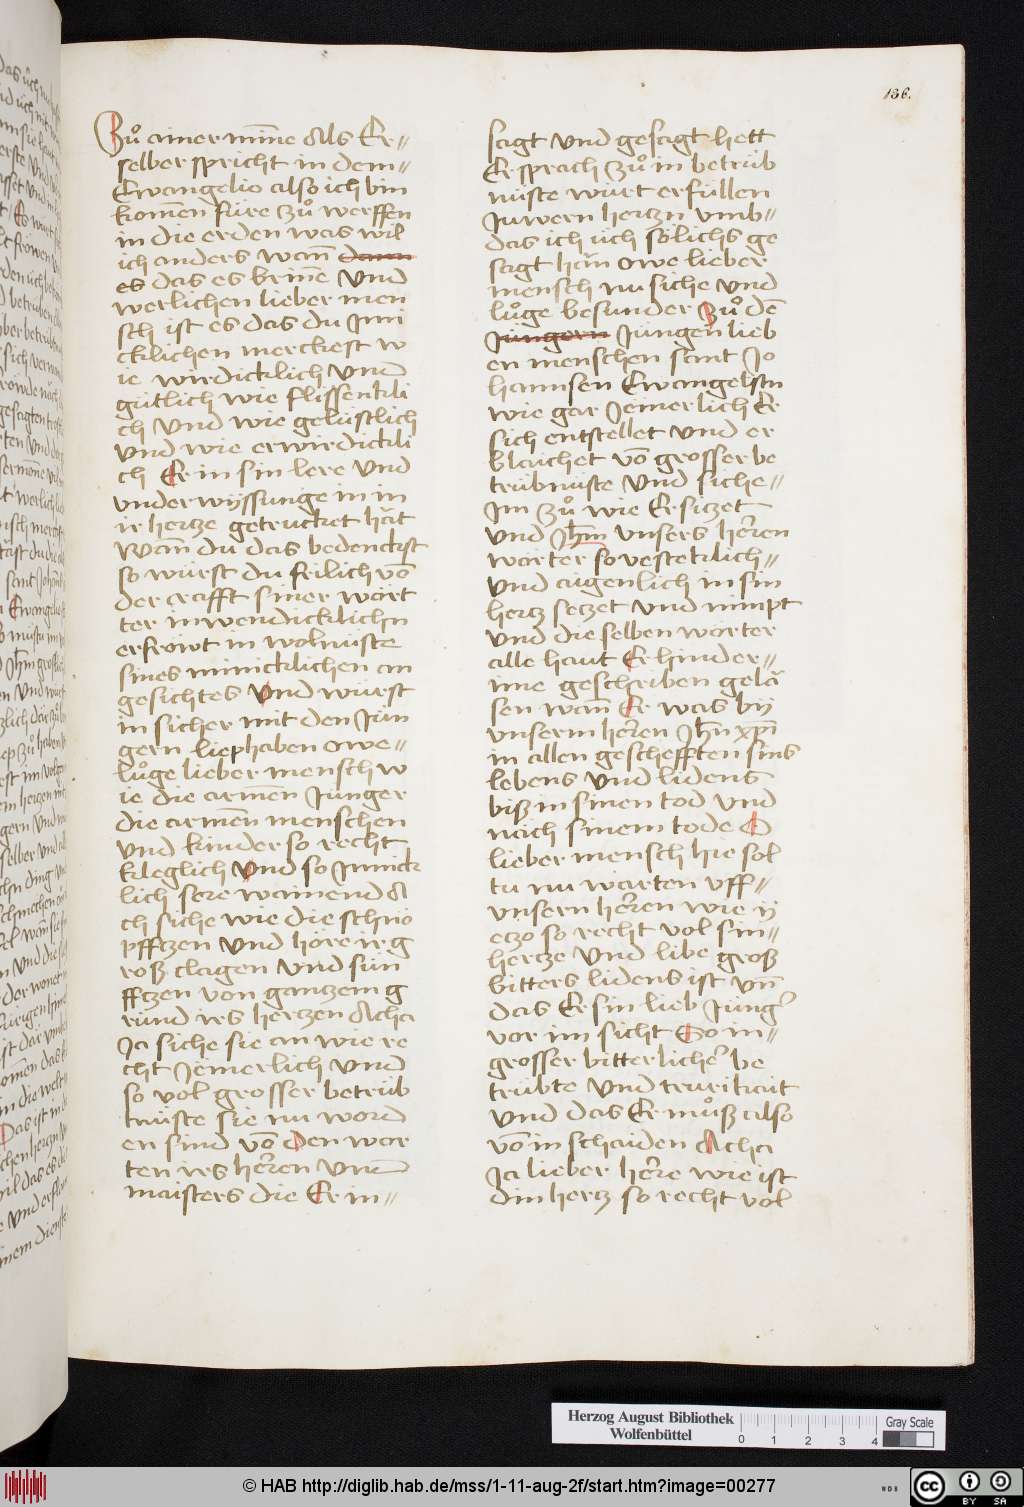 136.
Zuͦ ainer minne Als Er〃
selber spricht in dem〃
Ewangelio also ich bin
komen füre zuͦ werffen
in die erden was wil
ich anders wann dann
es das es brinne Vnd
werlichen lieber men
sch ist es das du Inni
cklichen merckest w
ie wirdicklich vnd
gütlich wie flissenkli
ch Vnd wie gelüstlich
vnd wie erwirdickli
ch Er in sin lere Vnd
vnderwyssunge in in
ir hertze getrucket hät
Wann du das bedenckst
so würst du frilich vō
der crafft siner wört
ter inwendicklichn
erfröwt in wolnüste
sines minicklichen an
gesichtes Vnd würst
in sicher mit den Jün
gern liephaben owe〃
luͦge lieber mensch w
ie die armen Jünger
die armen menschen
vnd kinder so recht
kleglich Vnd so Innick
lich sere wainend A
ch siche wie die schnö
pfftzen Vnd höre ir g
roß clagen Vnd sün
fftzen von gantzem g
rund irs hertzen Acha
Ja siche sie an wie re
cht Jemerlich Vnd
so vol grosser betrüb
tnüste sie nu word
en sind vō Den wor
ten irs herren Vnd
maisters die Er in〃
sagt Vnd gesagt hett
Er sprach zuͦ in betrüb
nüste würt erfüllen
Juwern hertzn vmb〃
das ich üch sölichs ge
sagt hän owe lieber
mensch nu siche vnd
luͦge besunder Zuͦ dē
Jüngern Jüngen lieb
en menschen sant Jo
hannsen Ewangelstn
wie gar Jemerlich Er
sich entstellet Vnd er
blaichet vō grosser be
trübnüste Vnd siche〃
Im zuͦ wie Er sitzet
vnd Jhm vnsers herren
wörter so vesteklich〃
Vnd augenlich in sin
hertz setzet Vnd nimpt
Vnd die selben wörter
alle haut Er hinder〃
ime geschriben gelä
sen wann Er was by
vnserm herren Jhn xpi
in allen geschefften sins
lebens Vnd lidens
biß in sinen tod Vnd
nach sinem tode O
lieber mensch hie sol
tu nu warten vff〃
vnsern herren wie y
etzo so recht vol sin〃
hertze Vnd libe groß
bitters lidens ist vn̄
das Er sin lieb Jüng
vor im sicht So in〃
grosser bitterlicher be
trübte Vnd trurikait
Vnd das Er muͦß also
vō in schaiden Acha
Ja lieber herre wie ist
din hertz so recht vol
Herzog August Bibliothek
Wolfenbüttel
0 1 2 3 4
Gray Scale
© HAB http://diglib.hab.de/mss/1-11-aug-2f/start.htm?image=00277
WDB
cc BY SA